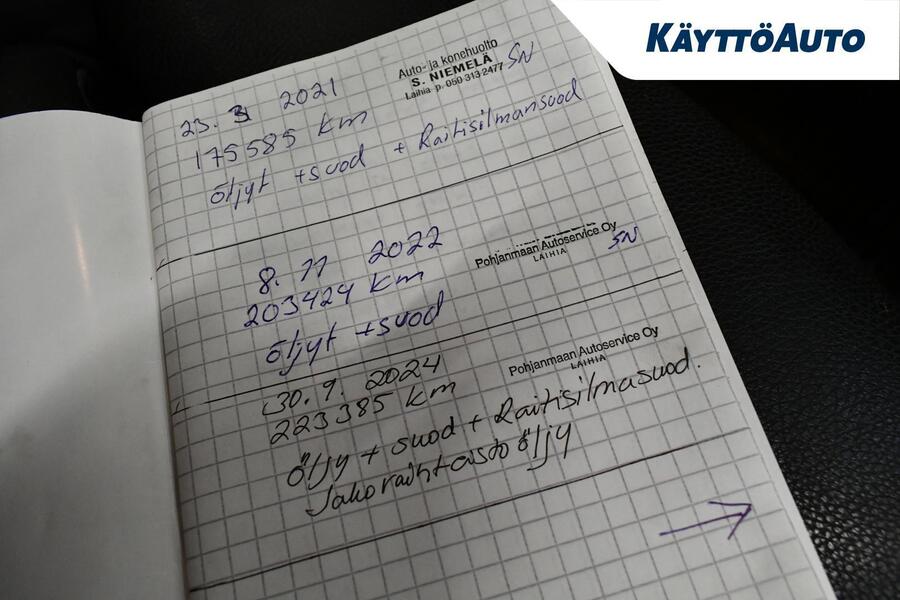 KÄYTTÖAUTO
23. 3 2021
Auto- ja konehuolto
S. NIEMELÄ
Laihia p. 050 313 2477
SN
175585 km
öljyt +suod + Raitisilmansuod
8. 11 2022
Pohjanmaan Autoservice Oy
LAIHIA
SN
203424 km
öljyt +suod
30. 9. 2024
Pohjanmaan Autoservice Oy
LAIHIA
223385 km
Öljy + suod + Raitisilmasuod.
Jakovaihtaisto öljy